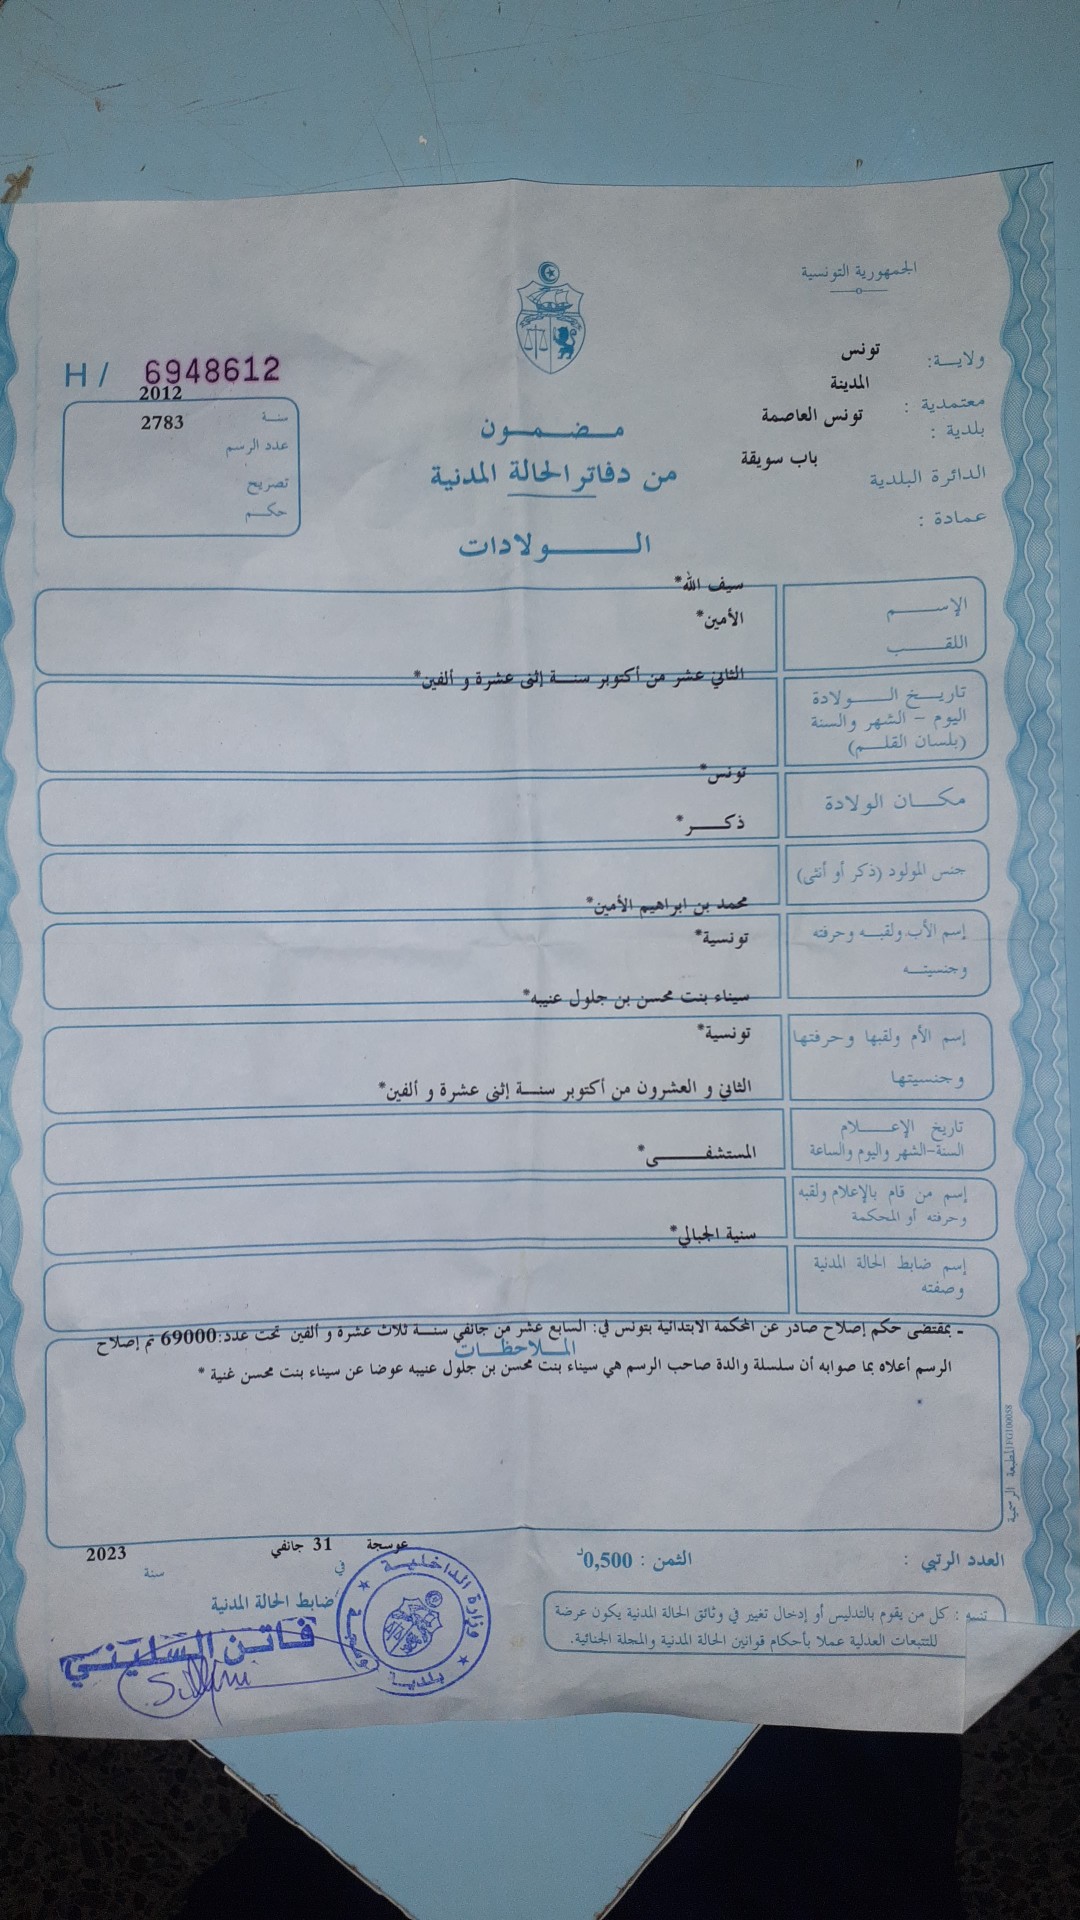 الجمهورية التونسية
ولاية: تونس
معتمدية : المدينة
بلدية : تونس العاصمة
الدائرة البلدية باب سويقة
عمادة :
H / 6948612
سنة 2012
عدد الرسم 2783
تصريح
حكم
مضمون
من دفاتر الحالة المدنية
الولادات
الإسم سيف الله*
اللقب الأمين*
تاريخ الولادة الثاني عشر من أكتوبر سنة إثنى عشرة و ألفين*
اليوم - الشهر والسنة
(بلسان القلم)
مكان الولادة تونس*
جنس المولود (ذكر أو أنثى) ذكر*
إسم الأب ولقبه وحرفته محمد بن ابراهيم الأمين*
وجنسيته تونسية*
إسم الأم ولقبها وحرفتها سيناء بنت محسن بن جلول عنيبه*
وجنسيتها تونسية*
تاريخ الإعلام الثاني و العشرون من أكتوبر سنة إثنى عشرة و ألفين*
السنة-الشهر واليوم والساعة
إسم من قام بالإعلام ولقبه المستشفى*
وحرفته أو المحكمة
إسم ضابط الحالة المدنية سنية الجبالي*
وصفته
الملاحظات
- بمقتضى حكم إصلاح صادر عن المحكمة الابتدائية بتونس في: السابع عشر من جانفي سنة ثلاث عشرة و ألفين تحت عدد:69000 تم إصلاح
الرسم أعلاه بما صوابه أن سلسلة والدة صاحب الرسم هي سيناء بنت محسن بن جلول عنيبه عوضا عن سيناء بنت محسن غنية *
*
المطبعة الرسمية
العدد الرتبي :
الثمن : 0,500د
عوسجة في 31 جانفي سنة 2023
ضابط الحالة المدنية
فاتن السليني
وزارة الداخلية
بلدية
: كل من يقوم بالتدليس أو إدخال تغيير في وثائق الحالة المدنية يكون عرضة
للتتبعات العدلية عملا بأحكام قوانين الحالة المدنية والمجلة الجنائية.